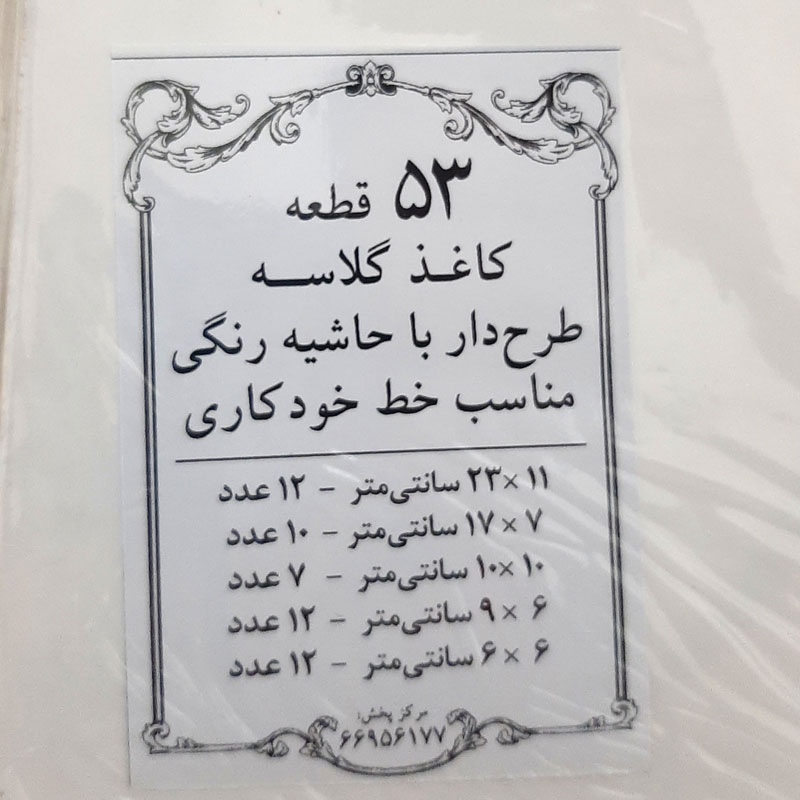 ۵۳ قطعه
کاغذ گلاسه
طرح‌دار با حاشیه رنگی
مناسب خط خودکاری
۱۱ × ۲۳ سانتی‌متر - ۱۲ عدد
۷ × ۱۷ سانتی‌متر - ۱۰ عدد
۱۰ × ۱۰ سانتی‌متر - ۷ عدد
۶ × ۹ سانتی‌متر - ۱۲ عدد
۶ × ۶ سانتی‌متر - ۱۲ عدد
مرکز پخش:
۶۶۹۵۶۱۷۷